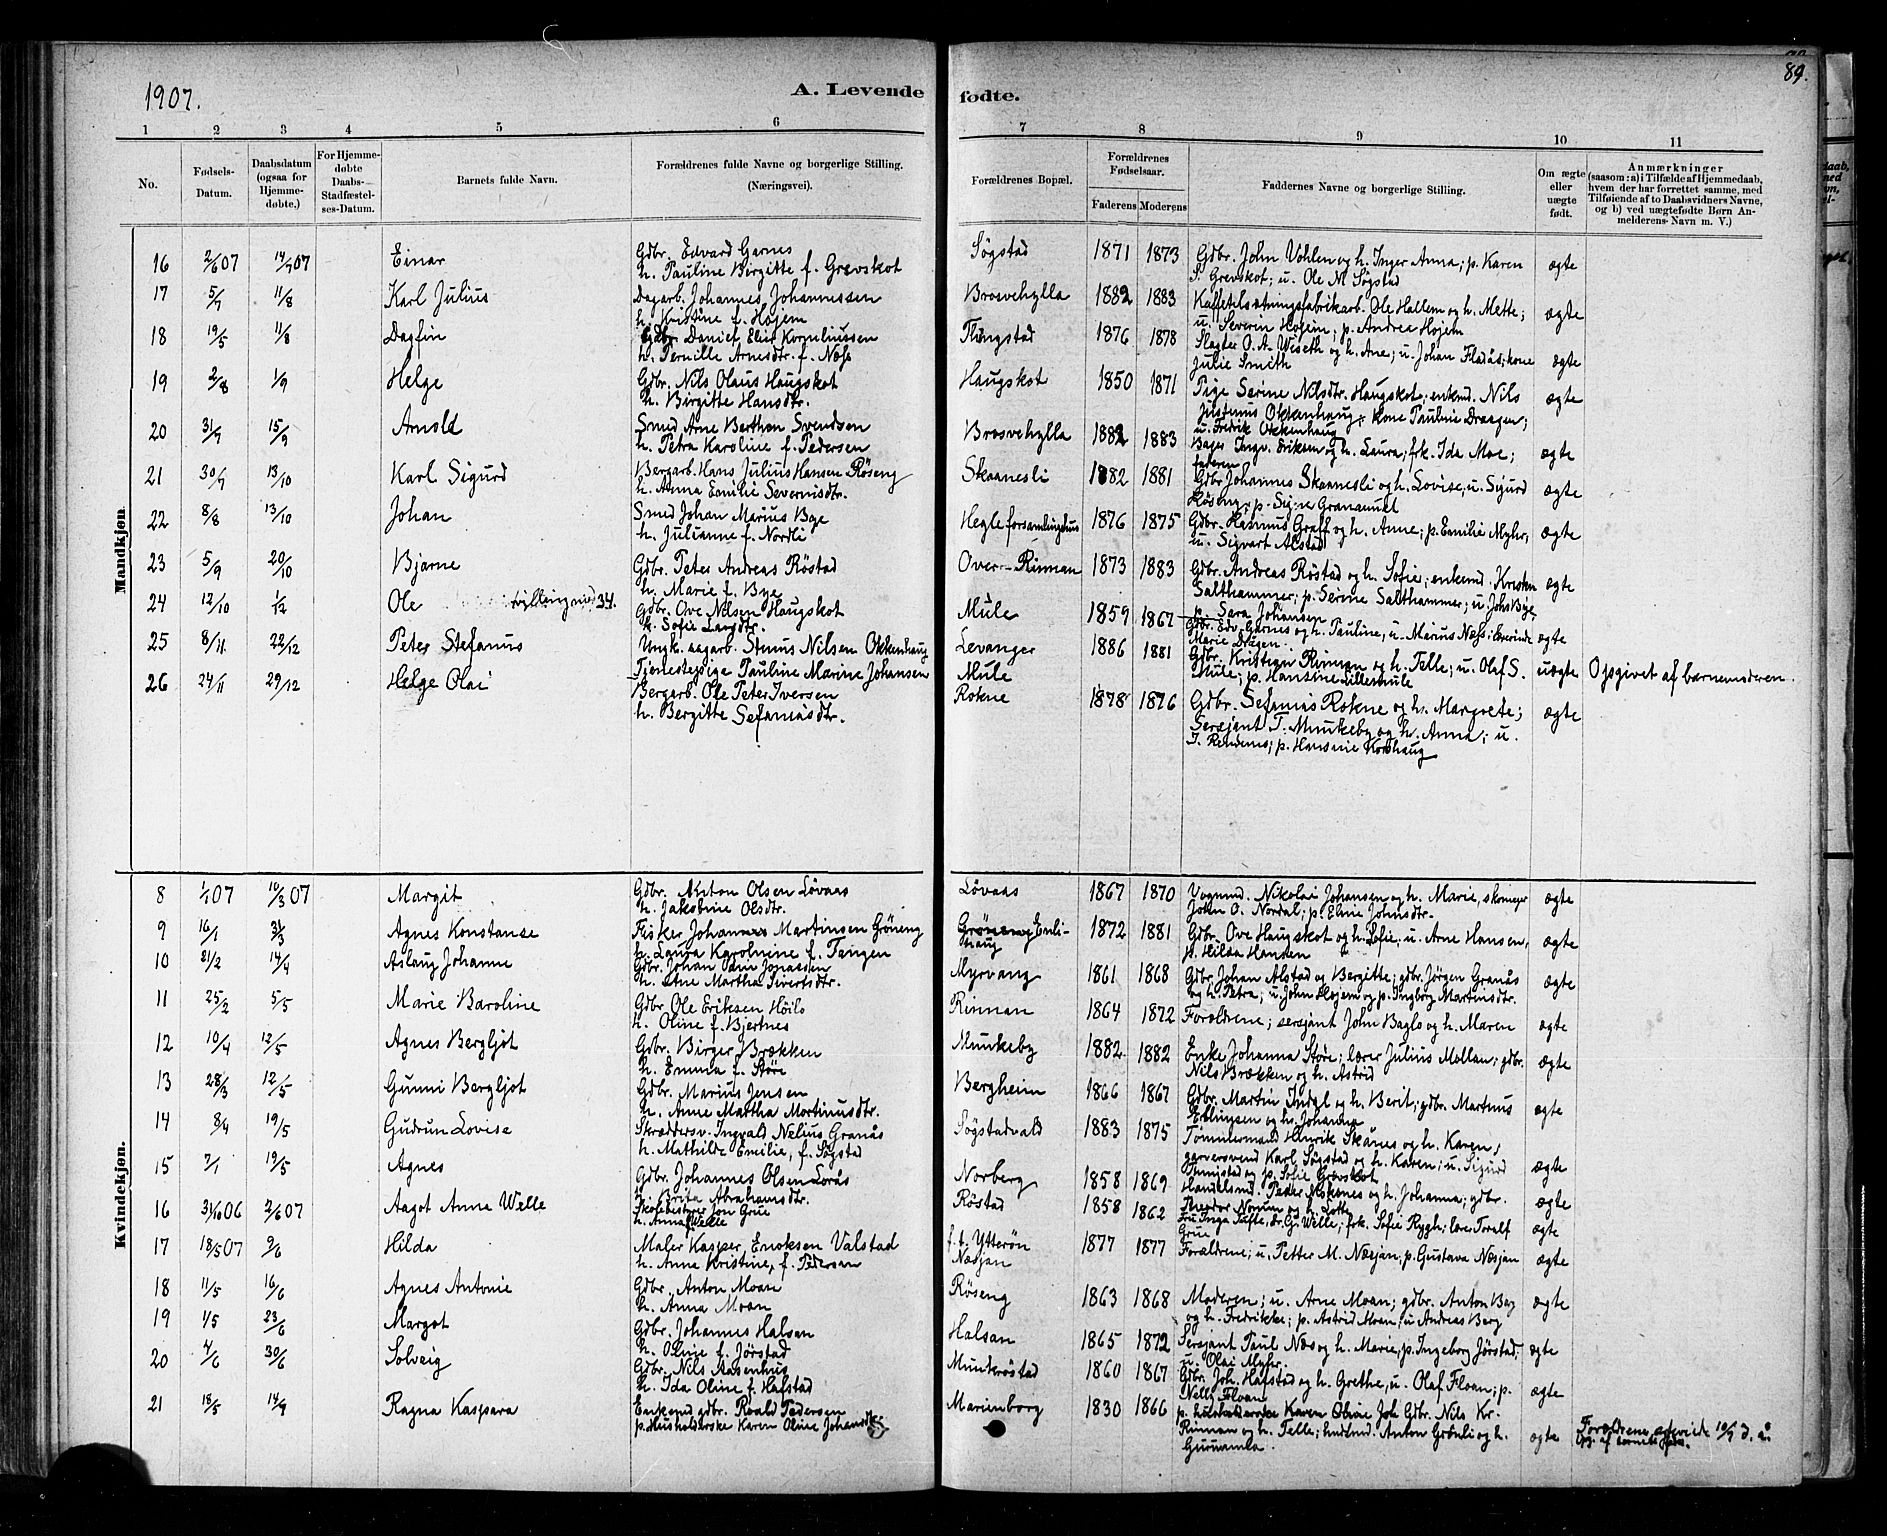 1907.
A. Levende fødte.
89.
1 2 3 4 5 6 7 8 9 10 11
No.
Fødsels-Datum.
Daabsdatum (ogsaa for Hjemme-døbte.)
For Hjemme-døbte Daabs-Stadfæstel-ses-Datum.
Barnets fulde Navn.
Forældrenes fulde Navne og borgerlige Stilling. (Næringsvei).
Forældrenes Bopæl.
Forældrenes Fødselsaar.
Faderens Moderens
Faddernes Navne og borgerlige Stilling.
Om ægte eller uægte født.
Anmærkninger
(saasom: a) i Tilfælde af Hjemmedaab, hvem der har forrettet samme, med Tilføiende af to Daabsvidners Navne, og b) ved uægtefødte Børn An-melderens Navn m. V.)
Mandkjøn.
16 2/6 07 14/7 07 Einar Gdbr. Edvard Garnes Søgstad 1871 1873 Gdbr. John Vohlen og h. Inger Anna; p. Karen ægte
h. Pauline Birgitte f. Grevskot S. Grevskot; u. Ole M Søgstad
17 5/7 11/8 Karl Julius Dagarb. Johannes Johannessen Brosvehylla 1882 1883 Kaffetilsætningsfabrikarb. Ole Hallem og h. Mette; ægte
h. Kristine f. Hojem u. Severin Hojem; p. Andrea Hojem
18 19/5 11/8 Dagfin Gdbr. Daniel Elias Korneliussen Tingstad 1876 1878 Slagter O. A. Wiseth og h. Ane; u. Johan Fladås; kone ægte
h. Pernille Arnesdtr. f. Næss Julie Smith
19 2/8 1/9 Helge Gdbr. Nils Olaus Haugskot Haugskot 1850 1871 Pige Serine Nilsdtr. Haugskot; enkemd. Nils ægte
h. Birgitte Hansdtr. Justinus Okkenhaug; kone Pauline Draagen;
u. Fredrik Okkenhaug
20 31/7 15/9 Arnold Smed Arne Berthon Svendsen Brosvehylla 1882 1883 Bager Ingv. Eriksen og h. Laura; frk. Ida Moe; ægte
h. Petra Karoline f. Pedersen faderen
21 30/7 13/10 Karl Sigurd Bergarb. Hans Julius Hansen Røseng Skaanesli 1882 1881 Gdbr. Johannes Skaanesli og h. Lovise, u. Sigurd ægte
h. Anna Emilie Severinsdtr. Røseng, p. Signe Granamul
22 8/8 13/10 Johan Smed Johan Marius Bye Hegle forsamlingshus 1876 1875 Gdbr. Rasmus Graff og h. Anne; p. Emilie Myhr, ægte
h. Julianne f. Nordli u. Sigvart Alstad
23 5/9 20/10 Bjarne Gdbr. Peter Andreas Røstad Over-Rinnan 1873 1883 Gdbr. Andreas Røstad og h. Sofie, enkemd. Kristen ægte
h. Marie f. Bye Salthammer; p. Serine Salthammer; u. Johs Bye,
p. Sara Johansen
24 12/10 1/12 Ole tvilling med 34. Gdbr. Ove Nilsen Haugskot Mule 1859 1867 Gdbr. Edv. Garnes og h. Pauline, u. Marius Næss; lærerinde ægte
h. Sofie Larsdtr. Marie Dragen.
25 8/11 22/12 Peter Stefanus Ungk. sagarb. Stenus Nilsen Okkenhaug Levanger 1886 1881 Gdbr. Kristian Rinnan og h. Telle; u. Olaf S. uægte Opgivet af barnemoderen.
Tjenestepige Pauline Marine Johansen Mule Mule; p. Hansine Lillemule
26 24/11 29/12 Helge Olai Bergarb. Ole Peter Iversen Rokne 1878 1876 Gdbr. Sefanias Rokne og h. Margrete; ægte
h. Bergitte Sefaniasdtr. Sersjant T. Munkeby og h. Anna; u.
p. Hansine
Kvindekjøn.
8 1/1 07 10/3 07 Margit Gdbr. Anton Olsen Lövaas Lövaas 1867 1870 Vognmd. Nikolai Johansen og h. Marie, skomager ægte
h. Jakobine Olsdtr. John O. Nordal; p. Eline Johnsdtr.
9 16/1 31/3 Agnes Konstanse Fisker Johannes Martinsen Grøneng Grøneng Enli- 1872 1881 Gdbr. Ove Haugskot og h. Sofie. u. Arne Hansen, ægte
h. Laura Karolnine f. Tangen haug p. Hilda Hansen
10 21/2 14/4 Aslaug Johanne Gdbr. Johan Jonassen Myrvang 1861 1868 Gdbr. Johan Alstad og Bergitte; gdbr. Jörgen Granås ægte
h. Ane Martha Sivertsdtr. og h. Petra; u. John Hojem og p. Ingborg Martinsdtr.
11 25/2 5/5 Marie Baroline Gdbr. Ole Eriksen Höilo Rinnan 1864 1872 Forældrene; sersjant John Baglo og h. Maren ægte
h. Oline f. Bjertnes
12 10/4 12/5 Agnes Bergljot Gdbr. Birger Brækken Munkeby 1882 1882 Enke Johanna Støre; lærer Julius Mollan; gdbr. ægte
h. Emma f. Støre Nils Brækken og h. Astrid
13 28/3 12/5 Gunni Bergljot Gdbr. Marius Jensen Bergheim 1866 1867 Gdbr. Martin Indal og h. Berit; gdbr. Martinus ægte
h. Anne Martha Mortinusdtr. Erlingsen og h. Johanna
14 8/4 19/5 Gudrun Lovise Skræddersv. Ingvald Nelius Granås Søgstadvald 1883 1875 Tømmermand Henrik Skånes og h. Karen, ægte
h. Mathilde Emilie, f. Søgstad garversvend Karl Søgstad og h. Karen; u. Sigurd
Tingstad og p. Sofie Grevskot
15 7/1 19/5 Agnes Gdbr. Johannes Olsen Lorås Norberg 1858 1869 Handelsmd. Peder Moksnes og h. Johanna; gdbr. ægte
h. Brita Abrahamsdtr. Theodor Norum og h. Lotte
16 31/10 06 2/6 07 Aagot Anna Welle Skolebestyrer Jon Grue Røstad 1858 1862 Fru Inga Tufte, dr. G. Wille; frk. Sofie Rygh; lærer Toralf ægte
h. Anna f. Welle Grue
17 18/5 07 9/6 Hilda Maler Kasper Enoksen Valstad f. t. Ytterøn 1877 1877 Forældrene; u. Petter M. Næsjan, p. Gustava Næsjan ægte
h. Anna Kristine, f. Pedersen Næsjan
18 11/5 16/6 Agnes Antonie Gdbr. Anton Moan Røseng 1863 1868 Moderen; u. Arne Moan; gdbr. Anton Berg ægte
h. Anna Moan og h. Fredrikke; p. Astrid Moan, u. Andreas Berg
19 1/5 23/6 Margot Gdbr. Johannes Halsan Halsan 1865 1872 Sersjant Paul Næs og h. Marie, p. Ingeborg Jørstad; ægte
h. Oline f. Jørstad u. Olai Myhr.
20 4/6 30/6 Solveig Gdbr. Nils Aasenhus Munkrøstad 1860 1867 Gdbr. Joh. Hafstad og h. Grethe, u. Olaf Floan; p. ægte
h. Ida Oline f. Hafstad Nelly Floan
21 18/5 14/9 Ragna Kaspara Enkemd gdbr. Roald Pedersen Marienborg 1830 1866 p. husholderske Karen Oline Joh Gdbr. Nils Kr. ægte Forældrene 10/9 d. å.
p. Husholderske Karen Oline Johansdtr. Rinnan og h. Telle; hndlmd. Anton Grönli og h.
Gunnamla.